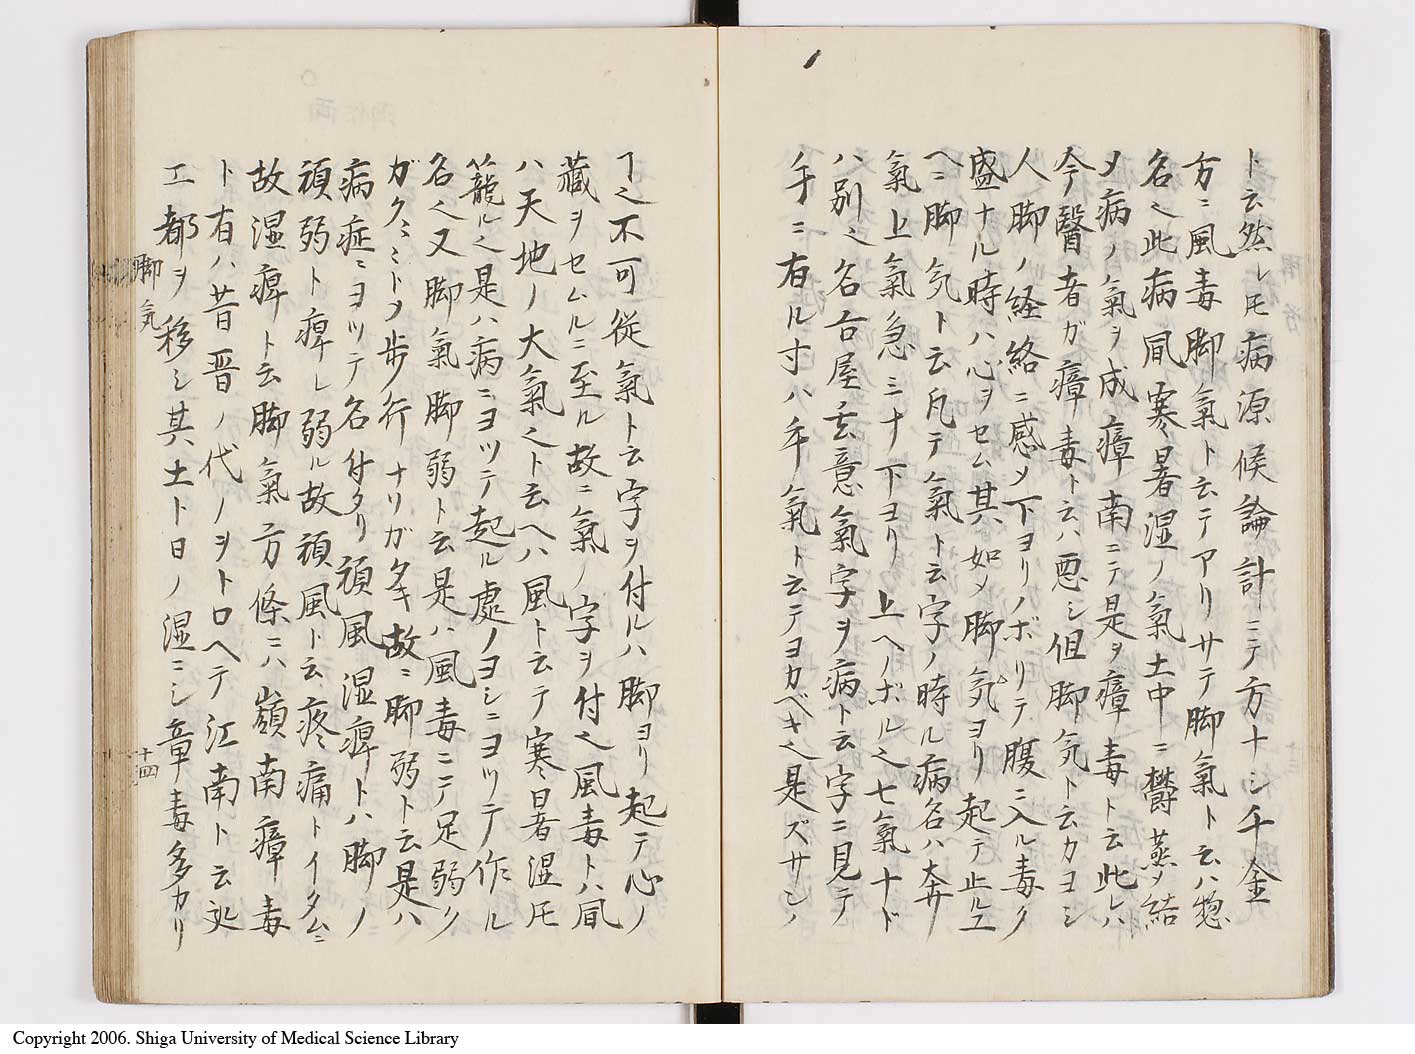 ト云然レ𪜈病源候論計ニテ方ナシ千金
方ニ風毒脚氣ト云テアリサテ脚氣ト云ハ惣
名之此病風寒暑湿ノ氣土中ニ欝蒸メ結
メ病ノ氣ヲ成瘴之南ニテ是ヲ瘴毒ト云此レハ
今醫者ガ瘴毒ト云ハ悪シ但脚気ト云カヨシ
人脚ノ経絡ニ感メ下ヨリノボリテ腹ニ入ル毒ク
盛ナル時ハ心ヲセム其如メ脚気ヨリ起テ止ルユ
ヘニ脚気ト云凡テ氣ト云字ノ時ル病名ハ奔
氣上氣急ミナ下ヨリ上ヘノボル之七氣ナド
ハ別之名古屋玄意氣字ヲ病ト云字ニ見テ
手ニ有ル寸ハ手氣ト云テヨカベキ之是ズサンノ
ヿ之不可従氣ト云字ヲ付ルハ脚ヨリ起テ心ノ
藏ヲセムルニ至ル故ニ氣ノ字ヲ付之風毒トハ風
ハ天地ノ大氣之ト云ヘハ風ト云テ寒暑湿𪜈
籠ル之是ハ病ニヨツテ起ル處ノヨシニヨツテ作ル
名之又脚氣脚弱ト云是ハ風毒ニテ足弱ク
ガクミトメ歩行ナリガタキ故ニ脚弱ト云是ハ
病症ニヨツテ名付タリ頑風湿痺トハ脚ノ
頑弱ト痺レ弱ル故頑風ト云疼痛トイタムニ
故湿痺ト云脚氣方條ニハ嶺南瘴毒
ト有ハ昔晋ノ代ノヲトロヘテ江南ト云処
エ都ヲ移シ其土ト日ノ湿ニシ章毒多カリ
脚気
十四